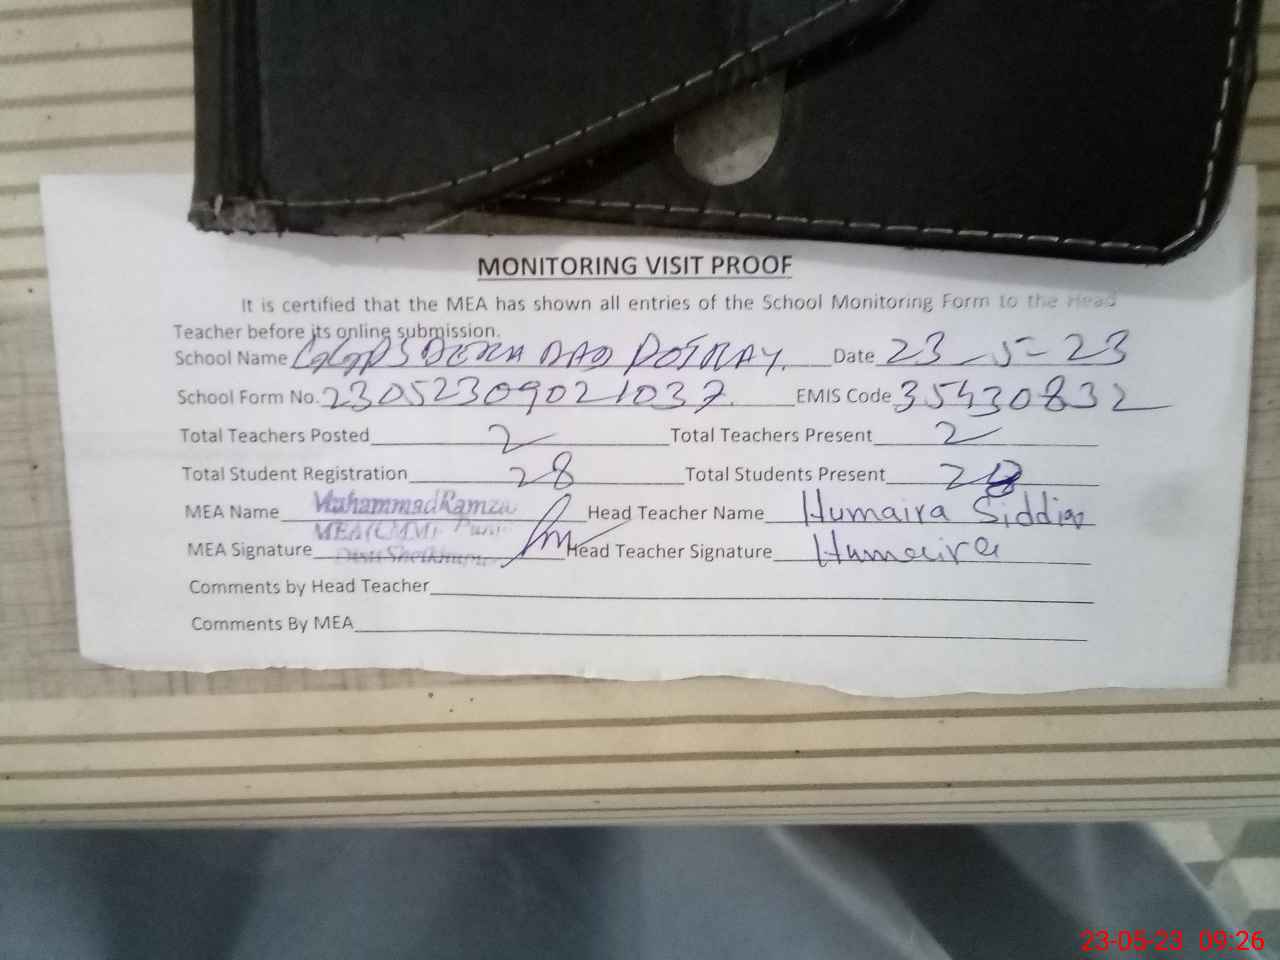 MONITORING VISIT PROOF
It is certified that the MEA has shown all entries of the School Monitoring Form to the Head
Teacher before its online submission.
School Name GGPS DERA DAD Date 23-5-23
School Form No. 23052309021037. EMIS Code 35430832
Total Teachers Posted 2 Total Teachers Present 2
Total Student Registration 28 Total Students Present
MEA Name Muhammad Ramzan Head Teacher Name Humaira Siddiq
MEA (CMM)
MEA Signature Head Teacher Signature Humaira
Comments by Head Teacher
Comments By MEA
23-05-23 09:26